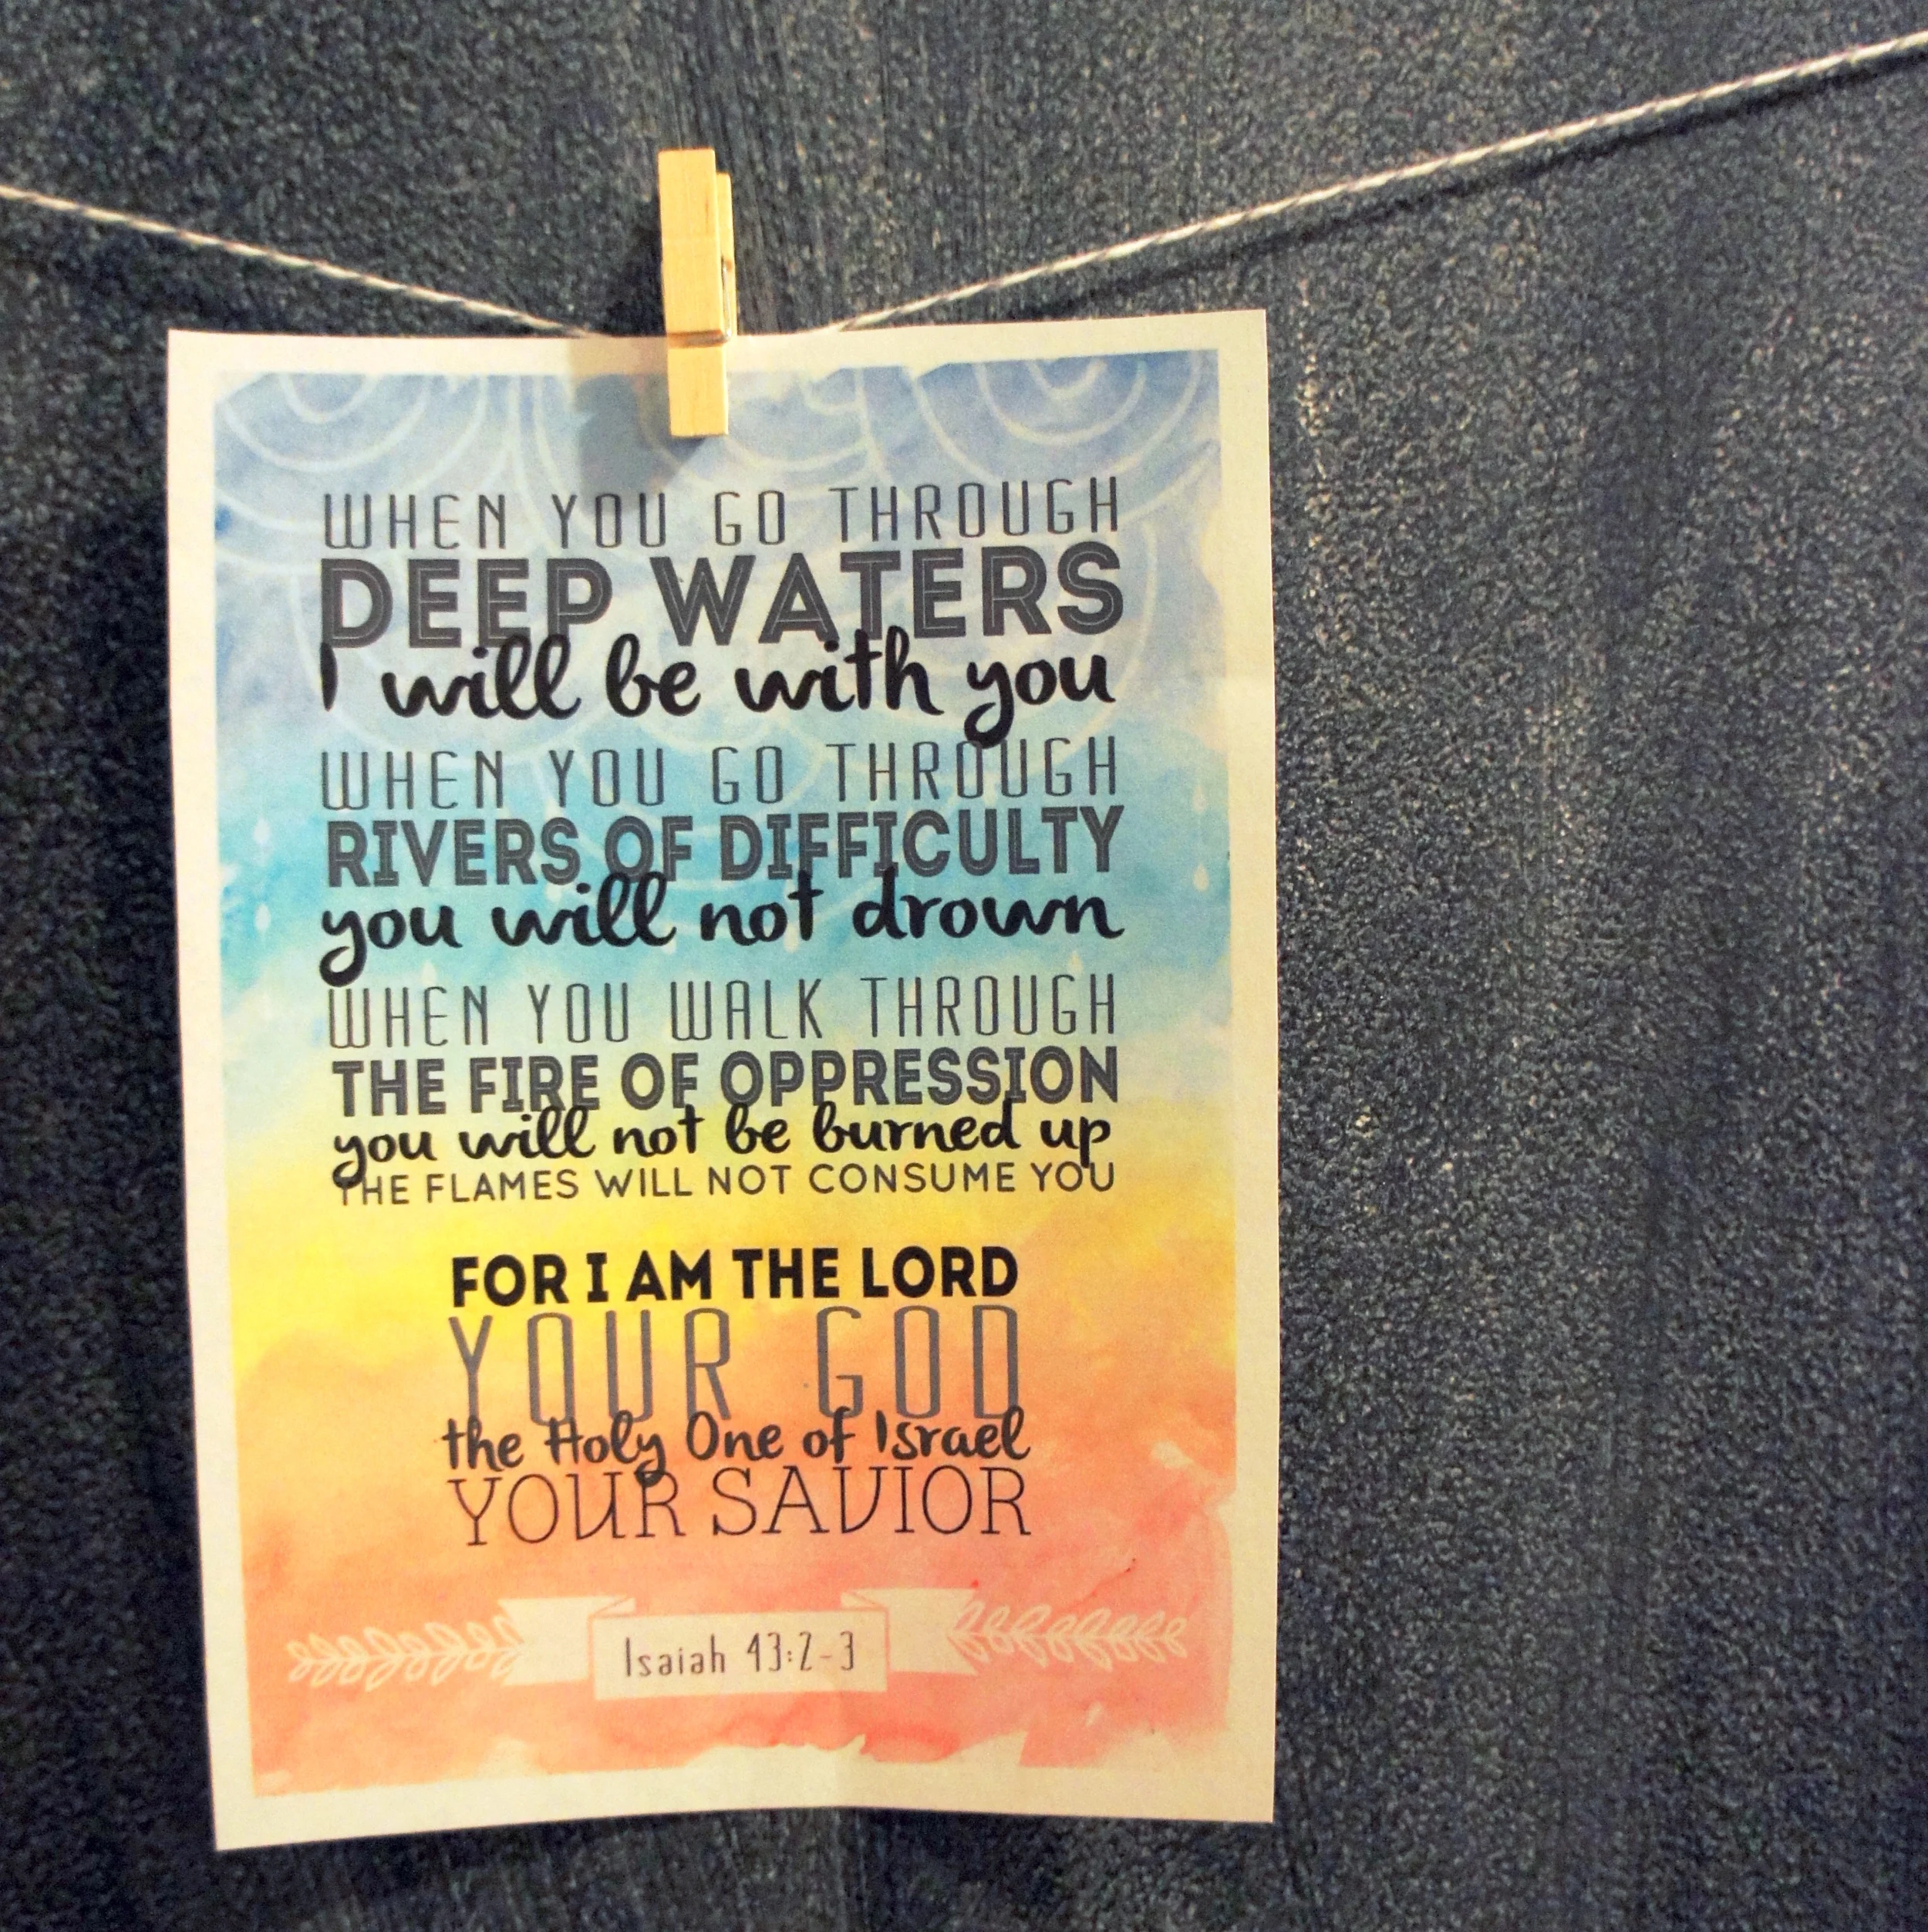 WHEN YOU GO THROUGH
DEEP WATERS
I will be with you
WHEN YOU GO THROUGH
RIVERS OF DIFFICULTY
you will not drown
WHEN YOU WALK THROUGH
THE FIRE OF OPPRESSION
you will not be burned up
THE FLAMES WILL NOT CONSUME YOU
FOR I AM THE LORD
YOUR GOD
the Holy One of Israel
YOUR SAVIOR
Isaiah 43:2-3